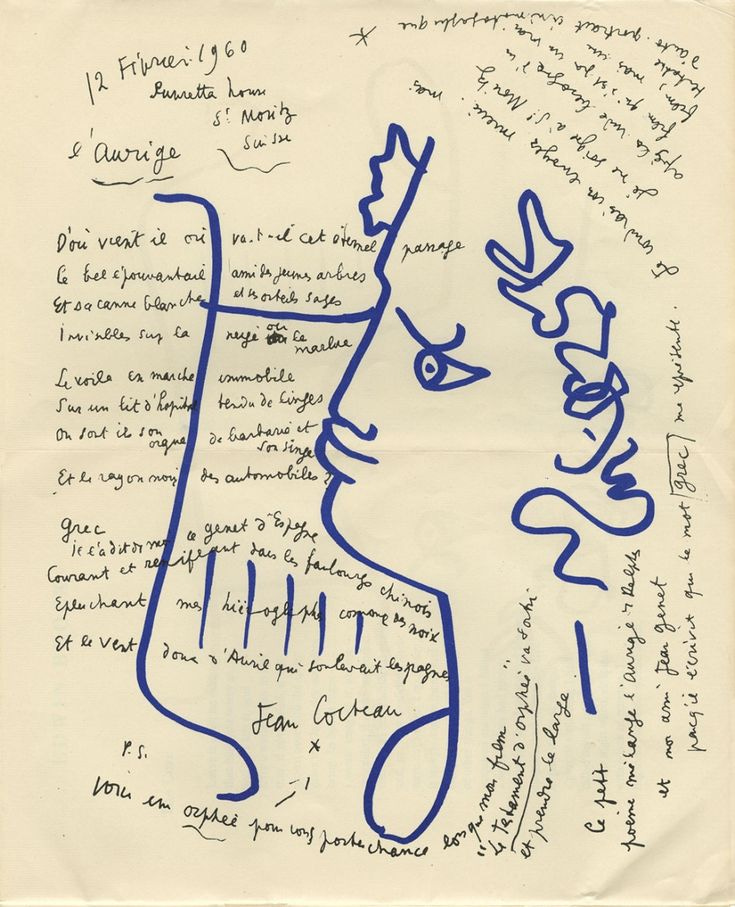 12 Février 1960
Suvretta house
St Moritz
Suisse
l'Aurige
D'où vient il où va-t-il cet éternel passage
Ce bel épouvantail ami des jeunes arbres
Et sa canne blanche et ses orteils sages
Invisibles sur la neige ou le marbre
Le voila en marche immobile
Sur un lit d'hopital tendu de linges
Où sort il son orgue de barbarie et son singe
Et le rayon noir des automobiles ?
Grec
Je l'ai dit de moi ce genet d'Espagne
Courant et reniflant dans les faubourgs chinois
Epluchant mes hiéroglyphes comme des noix
Et le vent doux d'Avril qui soulevait les pagnes
Jean Cocteau
*
P.S.
Voici un orphée pour vous porter chance lorsque mon film
"Le testament d'orphée" va sortir
et prendre le large
Ce petit
poème mélange l'aurige de Delphes
et mon ami Jean Genet
parce qu'il écrivit que le mot grec me représente.
Je voudrais vous envoyer mieux. mais
Je me soigne à St Moritz
après la rude besogne d'un
film qui n'est pas un vrai
film, mais un
d'auto-portrait cinématographique
*